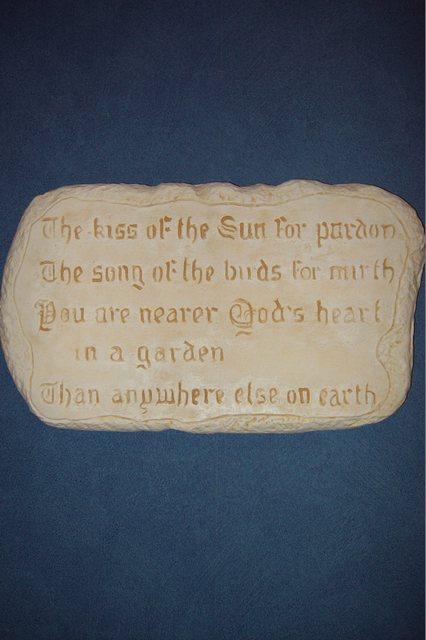 The kiss of the Sun for pardon
The song of the birds for mirth
You are nearer God's heart
in a garden
Than anywhere else on earth